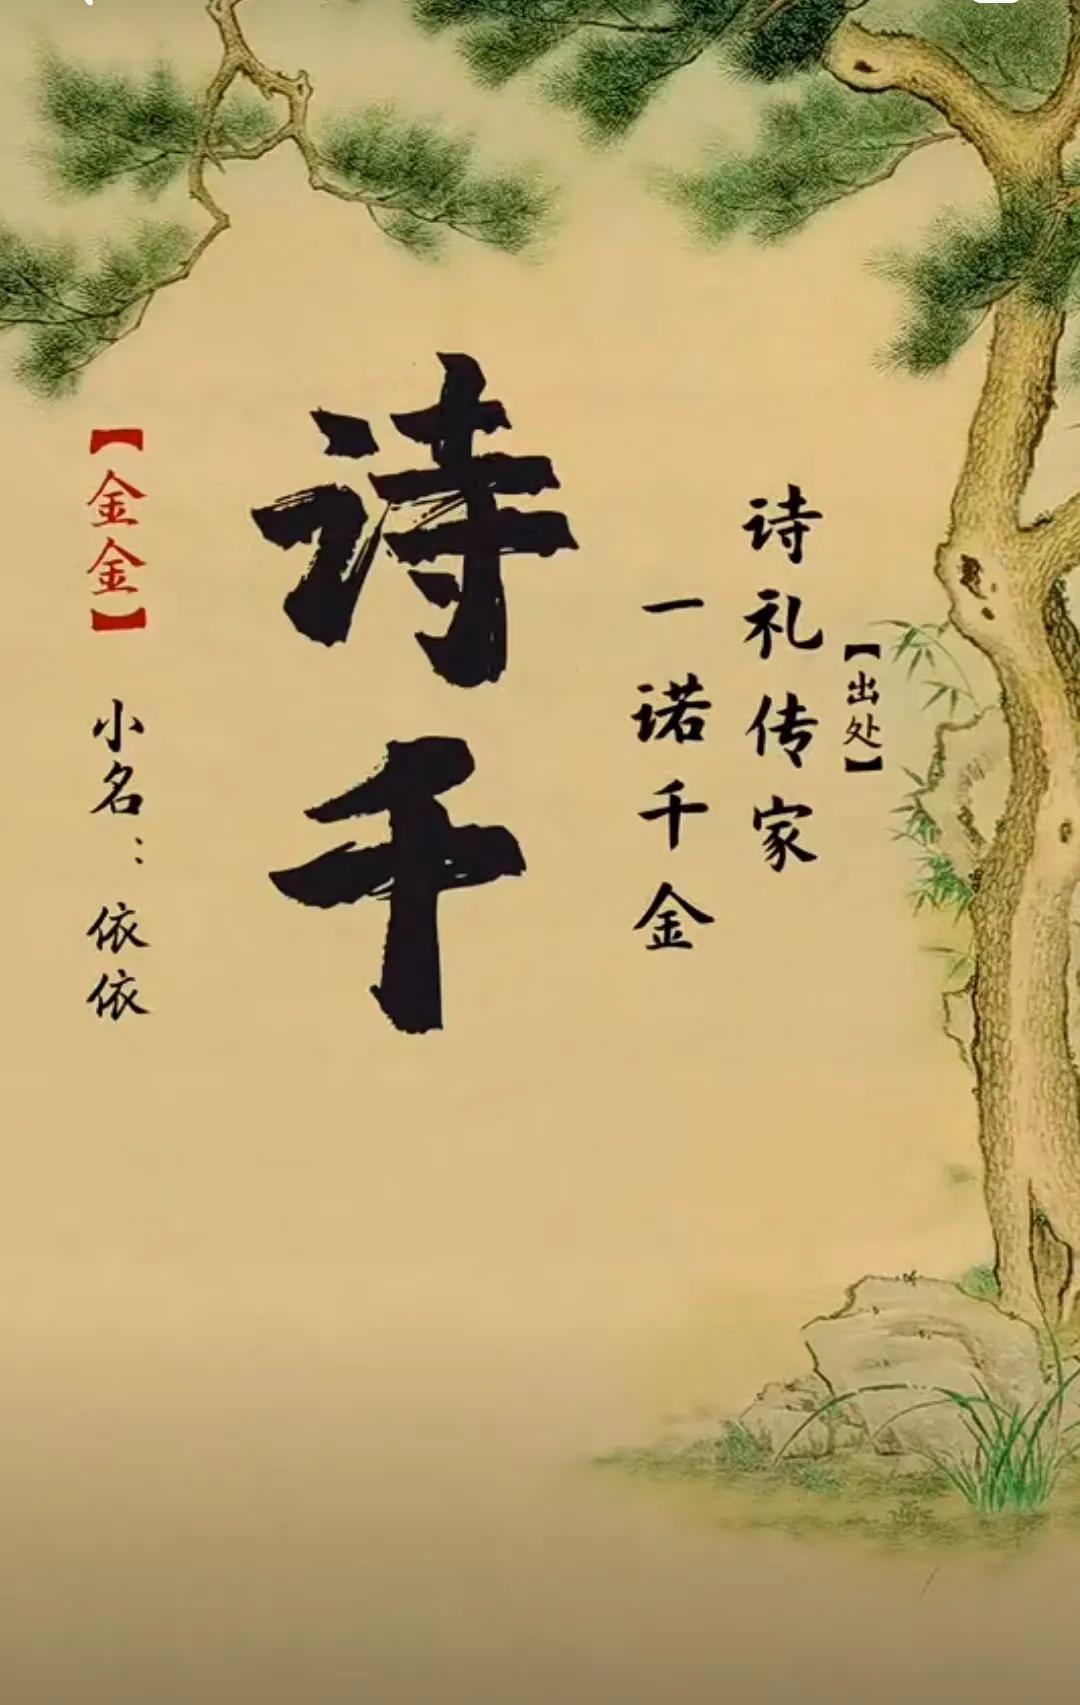 【出处】
诗礼传家
一诺千金
诗千
【金金】 小名：依依